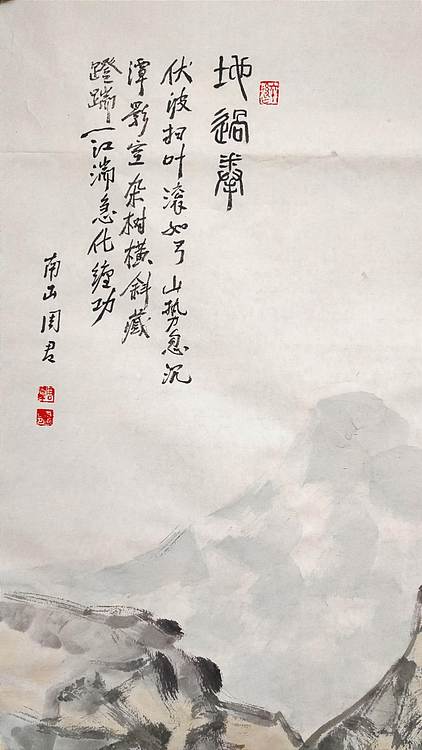 地過拳
伏波扫叶滚如弓山势忽沉
潭影空杂树横斜藏
蹬踹一江湍急化缠功
南山周君